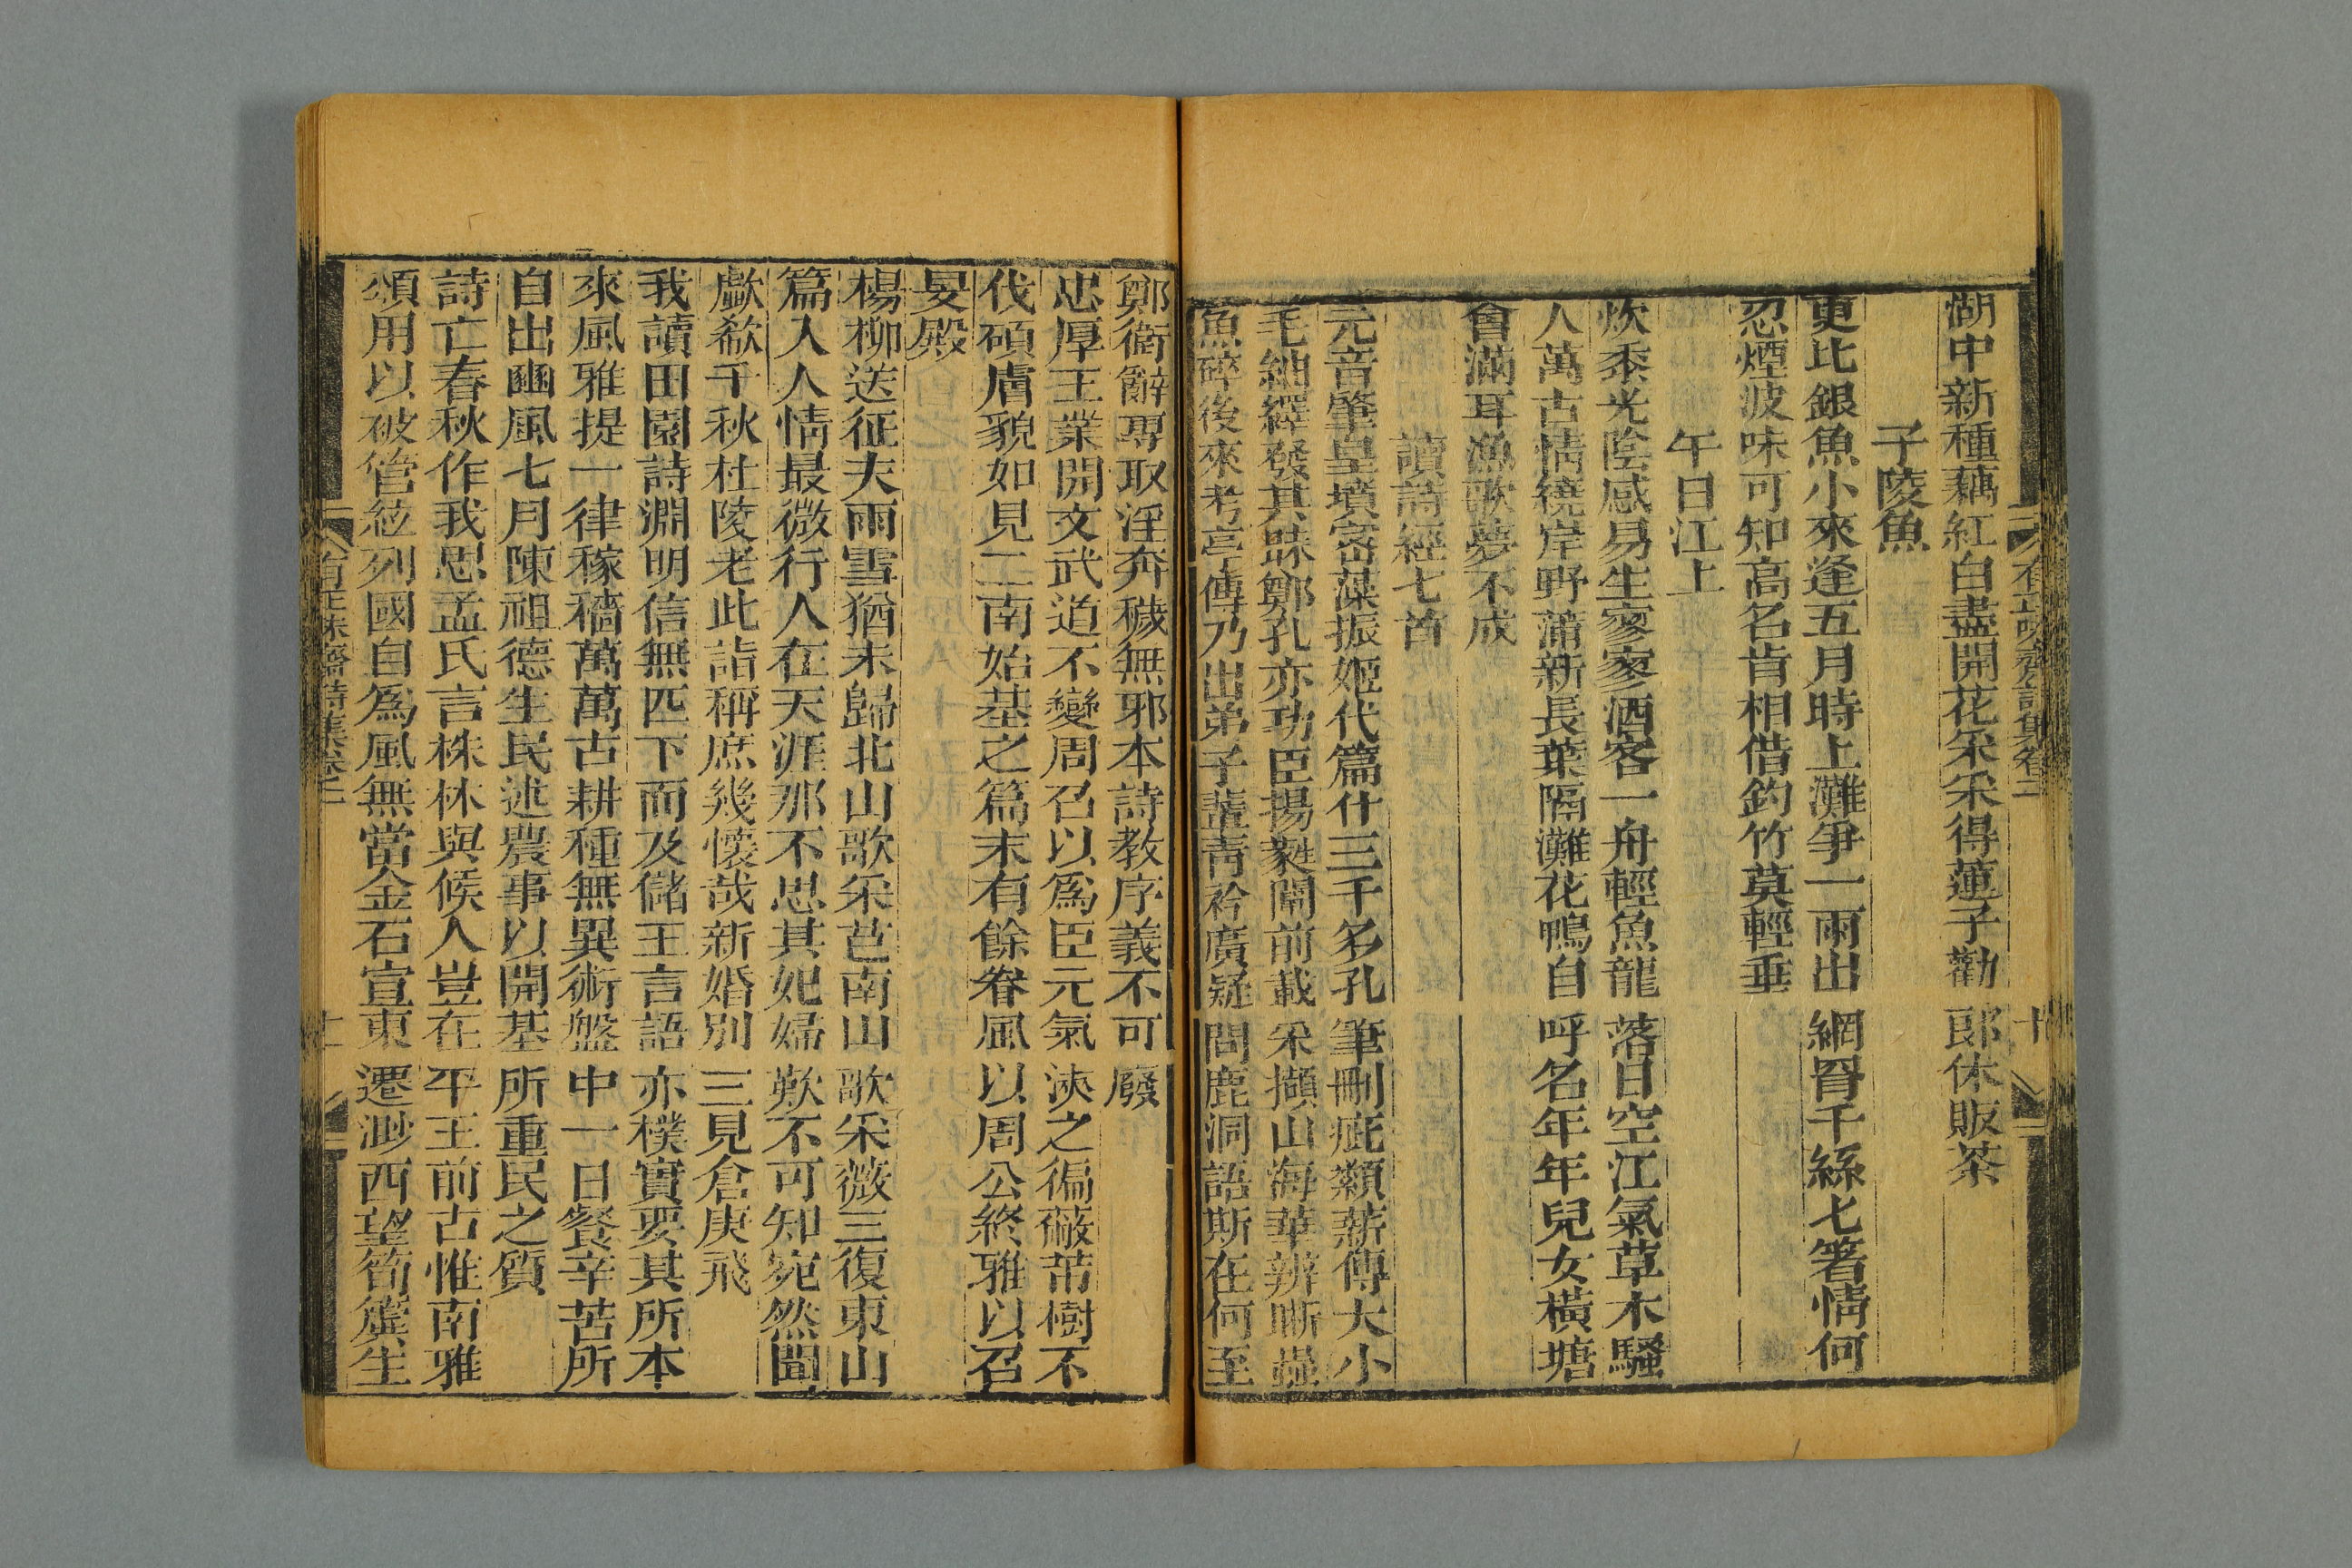 湖中新種藕紅白盡開花采采得蓮子勸郎休販茶
子陵魚
更比銀魚小來逢五月時上灘爭一雨出網胥千絲匕箸情何
忍煙波味可知高名肯相借釣竹莫輕垂
午日江上
炊黍光陰感易生寥寥酒客一舟輕魚龍落日空江氣草木騷
人萬古情繞岸野蒲新長葉隔灘花鴨自呼名年年兒女橫塘
會滿耳漁歌夢不成
讀詩經七首
元音肇皇墳密藻振姬代篇什三千多孔筆刪疵纇薪傳大小
毛紬繹發其昧鄭孔亦功臣揚蕤闡前載采擷山海華辨晰
魚碎後來考亭傳乃出弟子輩靑衿廣疑問鹿洞語斯在何至
鄭衛辭專取淫奔穢無邪本詩教序義不可廢
忠厚王業開文武道不變周召以爲臣元氣浹之徧蔽芾樹不
伐碩膚貌如見二南始基之篇末有餘眷風以周公終雅以召
旻殿
楊柳送征夫雨雪猶未歸北山歌采芑南山歌采薇三復東山
篇入人情最微行人在天涯那不思其妃婦歎不可知宛然聞
歔欷千秋杜陵老此詣稱庶幾懷哉新婚別三見倉庚飛
我讀田園詩淵明信無匹下而及儲王言語亦樸實要其所本
來風雅提一律稼穡萬萬古耕種無異術盤中一日餐辛苦所
自出豳風七月陳祖德生民述農事以開基所重民之質
詩亡春秋作我思孟氏言株林與候人豈在平王前古惟南雅
頌用以被管絃列國自爲風無當金石宣東遷渺西望筍簴生